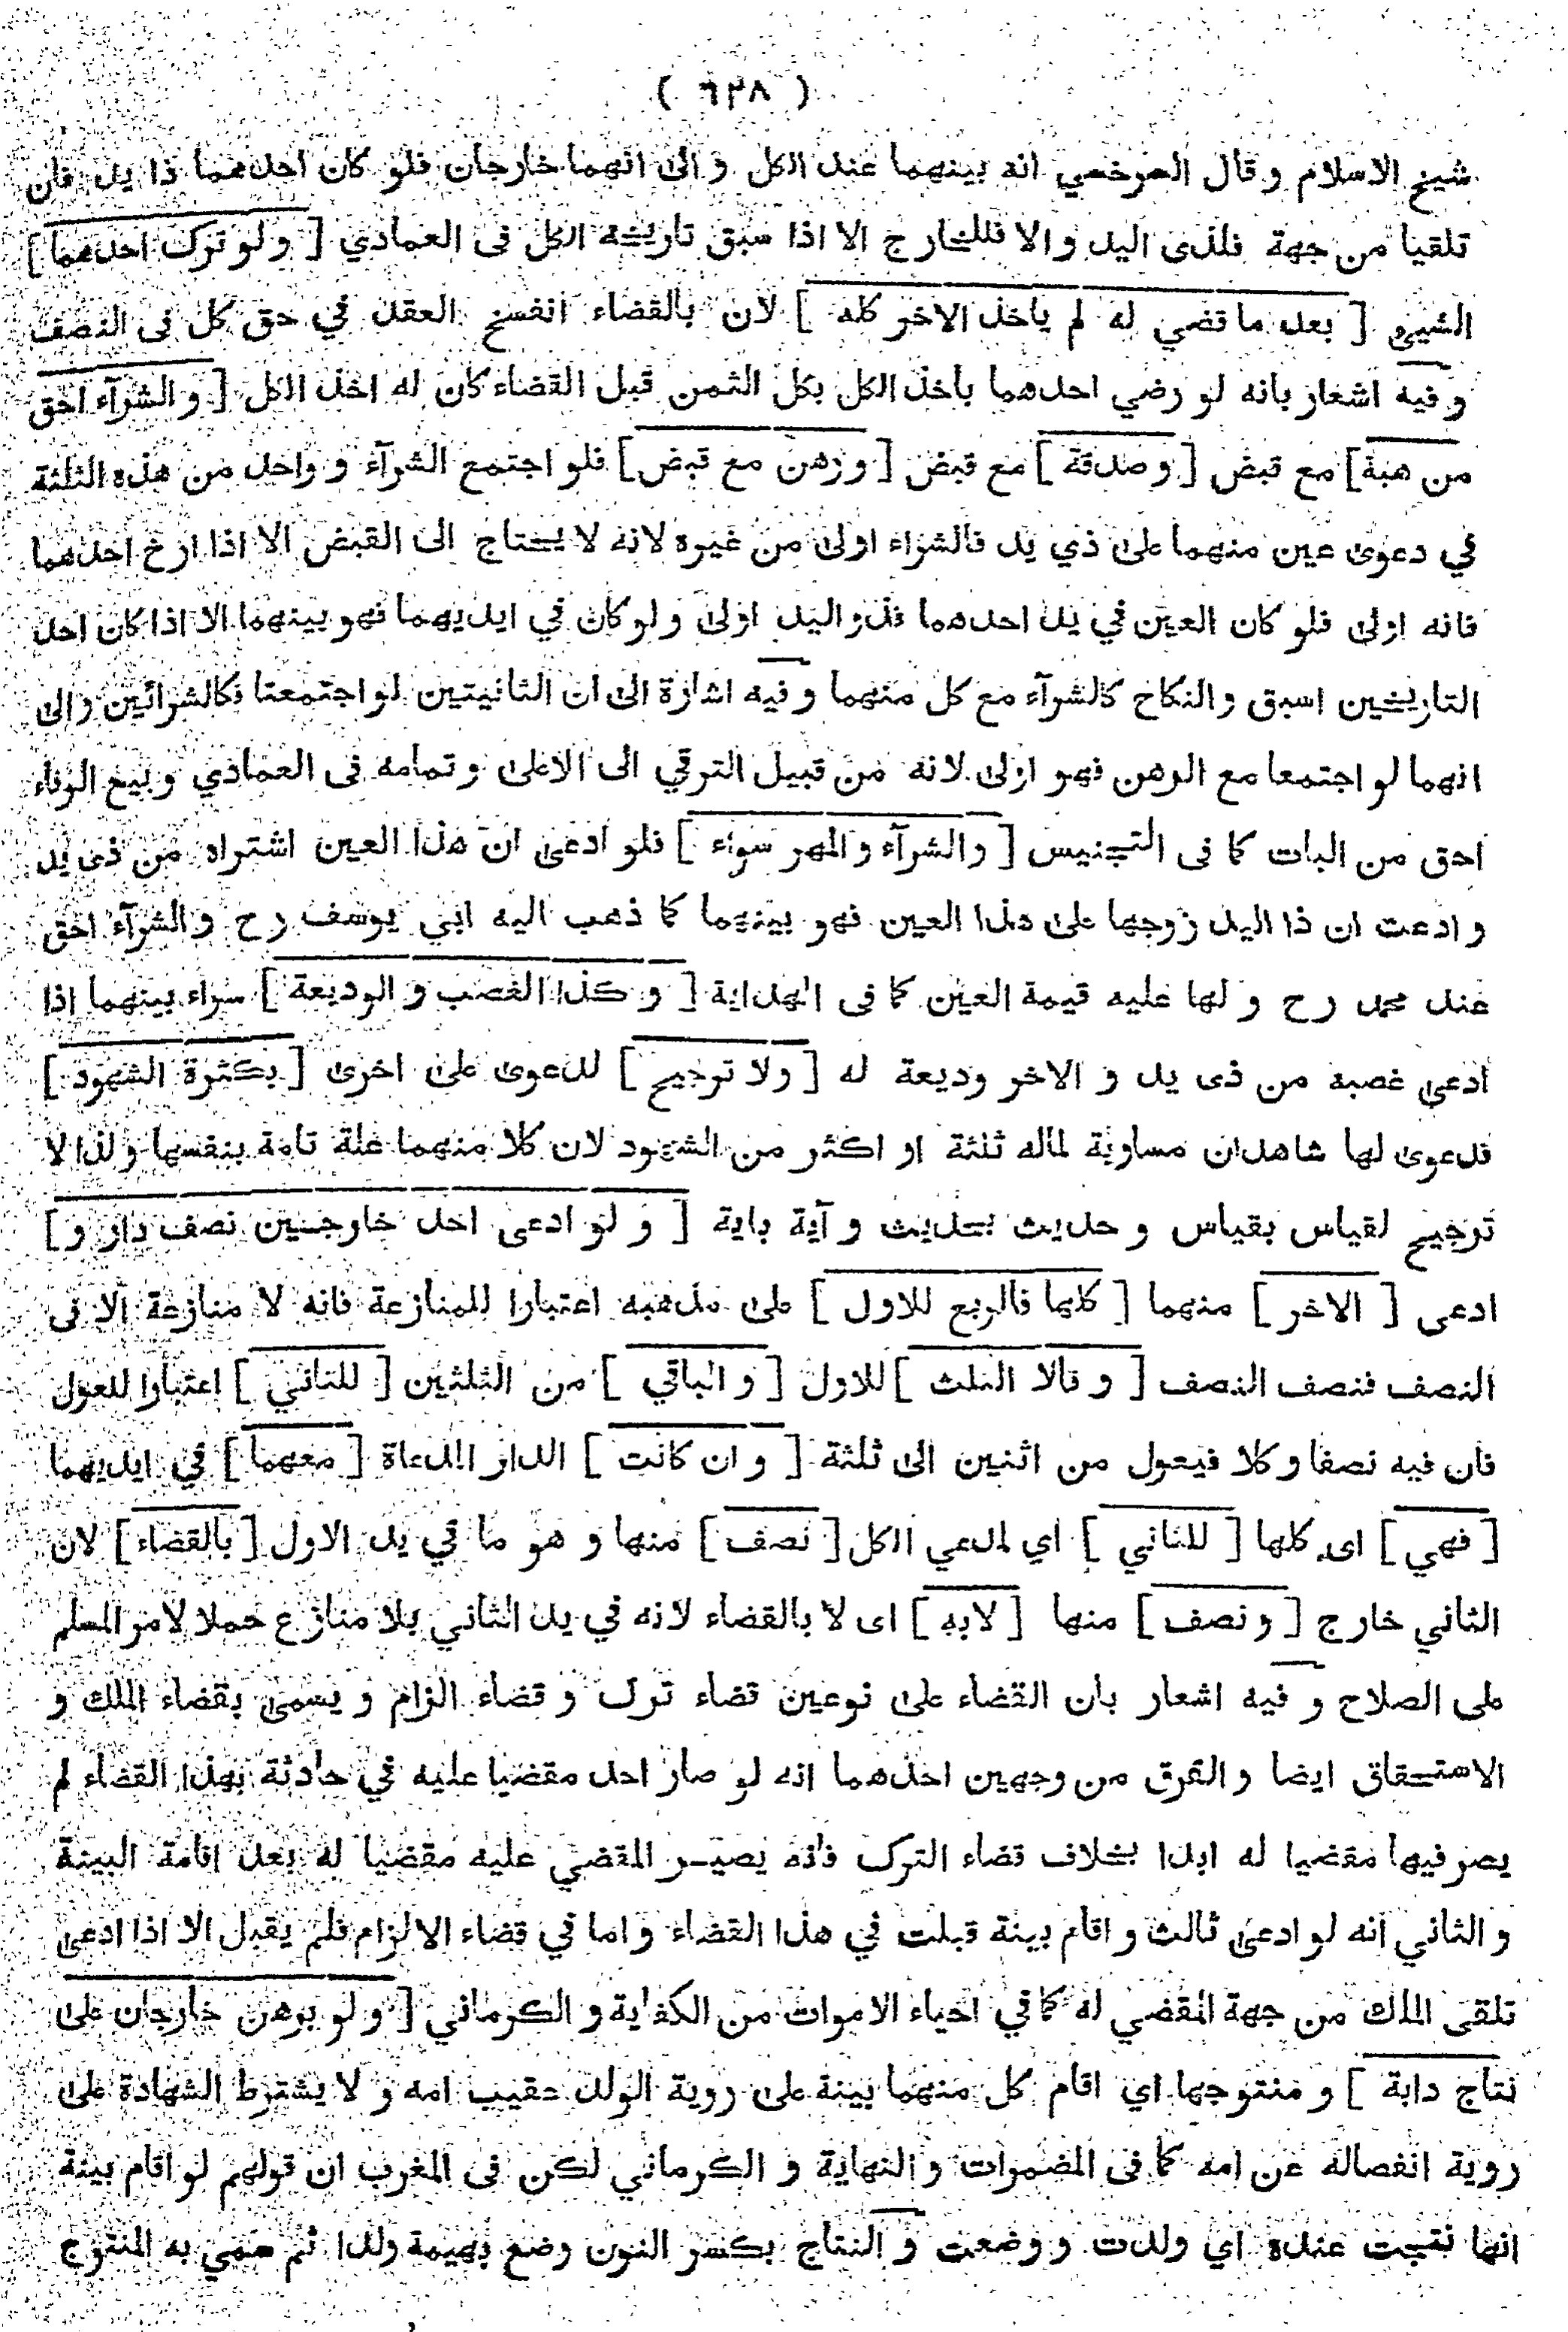 ( ٦٢٨ )
شيخ الاسلام وقال السرخسي انه بينهما عند الكل والى انهما خارجان فلو كان احدهما ذا يد فان
تلقيا من جهة فلذى اليد والا فللخارج الا اذا سبق تاريخه الكل فى العمادي [ ولو ترك احدهما ]
الشيئ [ بعد ما قضي له لم ياخذ الاخر كله ] لان بالقضاء انفسخ العقد في حق كل فى النصف
وفيه اشعار بانه لو رضي احدهما بأخذ الكل بكل الثمن قبل القضاء كان له اخذ الكل [ والشرآء احق
من هبة ] مع قبض [ وصدقة ] مع قبض [ ورهن مع قبض ] فلو اجتمع الشرآء وواحد من هذه الثلثة
في دعوى عين منهما على ذي يد فالشراء اولى من غيره لانه لا يحتاج الى القبض الا اذا ارخ احدهما
فانه اولى فلو كان العين في يد احدهما فذو اليد اولى ولو كان في ايديهما فهو بينهما الا اذا كان احد
التاريخين اسبق والنكاح كالشرآء مع كل منهما وفيه اشارة الى ان الثانيتين لو اجتمعتا فكالشرائين والى
انهما لو اجتمعا مع الرهن فهو اولى لانه من قبيل الترقي الى الاعلى وتمامه فى العمادي وبيع الوفاء
احق من البات كما فى التجنيس [ والشرآء والمهر سواء ] فلو ادعى ان هذا العين اشتراه من ذى يد
وادعت ان ذا اليد زوجها على هذا العين فهو بينهما كما ذهب اليه ابي يوسف رح والشرآء احق
عند محمد رح ولها عليه قيمة العين كما فى الهداية [ وكذا الغصب والوديعة ] سواء بينهما اذا
ادعى غصبه من ذى يد و الاخر وديعة له [ ولا ترجيح ] للدعوى على اخرى [ بكثرة الشهود ]
فدعوى لها شاهدان مساوية لماله ثلثة او اكثر من الشهود لان كلا منهما علة تامة بنفسها ولذا لا
ترجيح لقياس بقياس وحديث بحديث وآية باية [ ولو ادعى احد خارجين نصف دار و ]
ادعى [ الاخر ] منهما [ كلها فالربع للاول ] على مذهبه اعتبارا للمنازعة فانه لا منازعة الا فى
النصف فنصف النصف [ وقالا الثلث ] للاول [ والباقي ] من الثلثين [ للثاني ] اعتبارا للعول
فان فيه نصفا وكلا فيعول من اثنين الى ثلثة [ وان كانت ] الدار المدعاة [ معهما ] في ايديهما
[ فهي ] اى كلها [ للثاني ] اي لمدعي الكل [ نصف ] منها وهو ما في يد الاول [ بالقضاء ] لان
الثاني خارج [ ونصف ] منها [ لابه ] اى لا بالقضاء لانه في يد الثاني بلا منازع حملا لامر المسلم
على الصلاح وفيه اشعار بان القضاء على نوعين قضاء ترك وقضاء الزام ويسمى بقضاء الملك و
الاستحقاق ايضا والفرق من وجهين احدهما انه لو صار احد مقضيا عليه في حادثة بهذا القضاء لم
يصر فيها مقضيا له ابدا بخلاف قضاء الترك فانه يصير المقضي عليه مقضيا له بعد اقامة البينة
والثاني انه لو ادعى ثالث واقام بينة قبلت في هذا القضاء واما في قضاء الالزام فلم يقبل الا اذا ادعى
تلقى الملك من جهة المقضي له كما في احياء الاموات من الكفاية والكرماني [ ولو برهن خارجان على
نتاج دابة ] ومنتوجها اي اقام كل منهما بينة على روية الولد عقيب امه ولا يشترط الشهادة على
روية انفصاله عن امه كما فى المضمرات والنهاية و الكرماني لكن فى المغرب ان قولهم لو اقام بينة
انها نتجت عنده اي ولدت ووضعت و النتاج بكسر النون وضع بهيمة ولدا ثم سمي به المنتوج